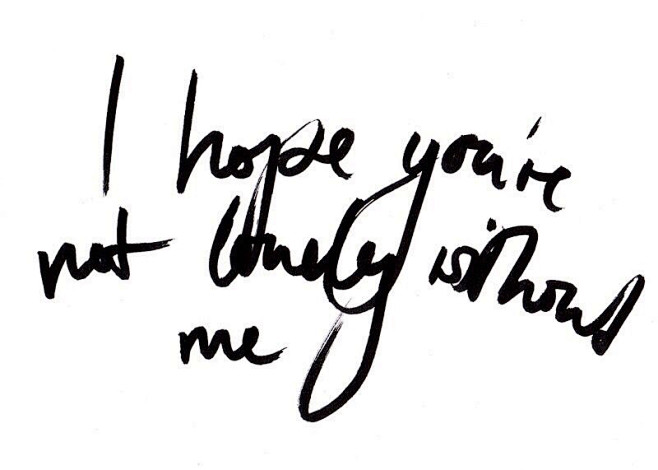 I hope you're
not lonely without
me